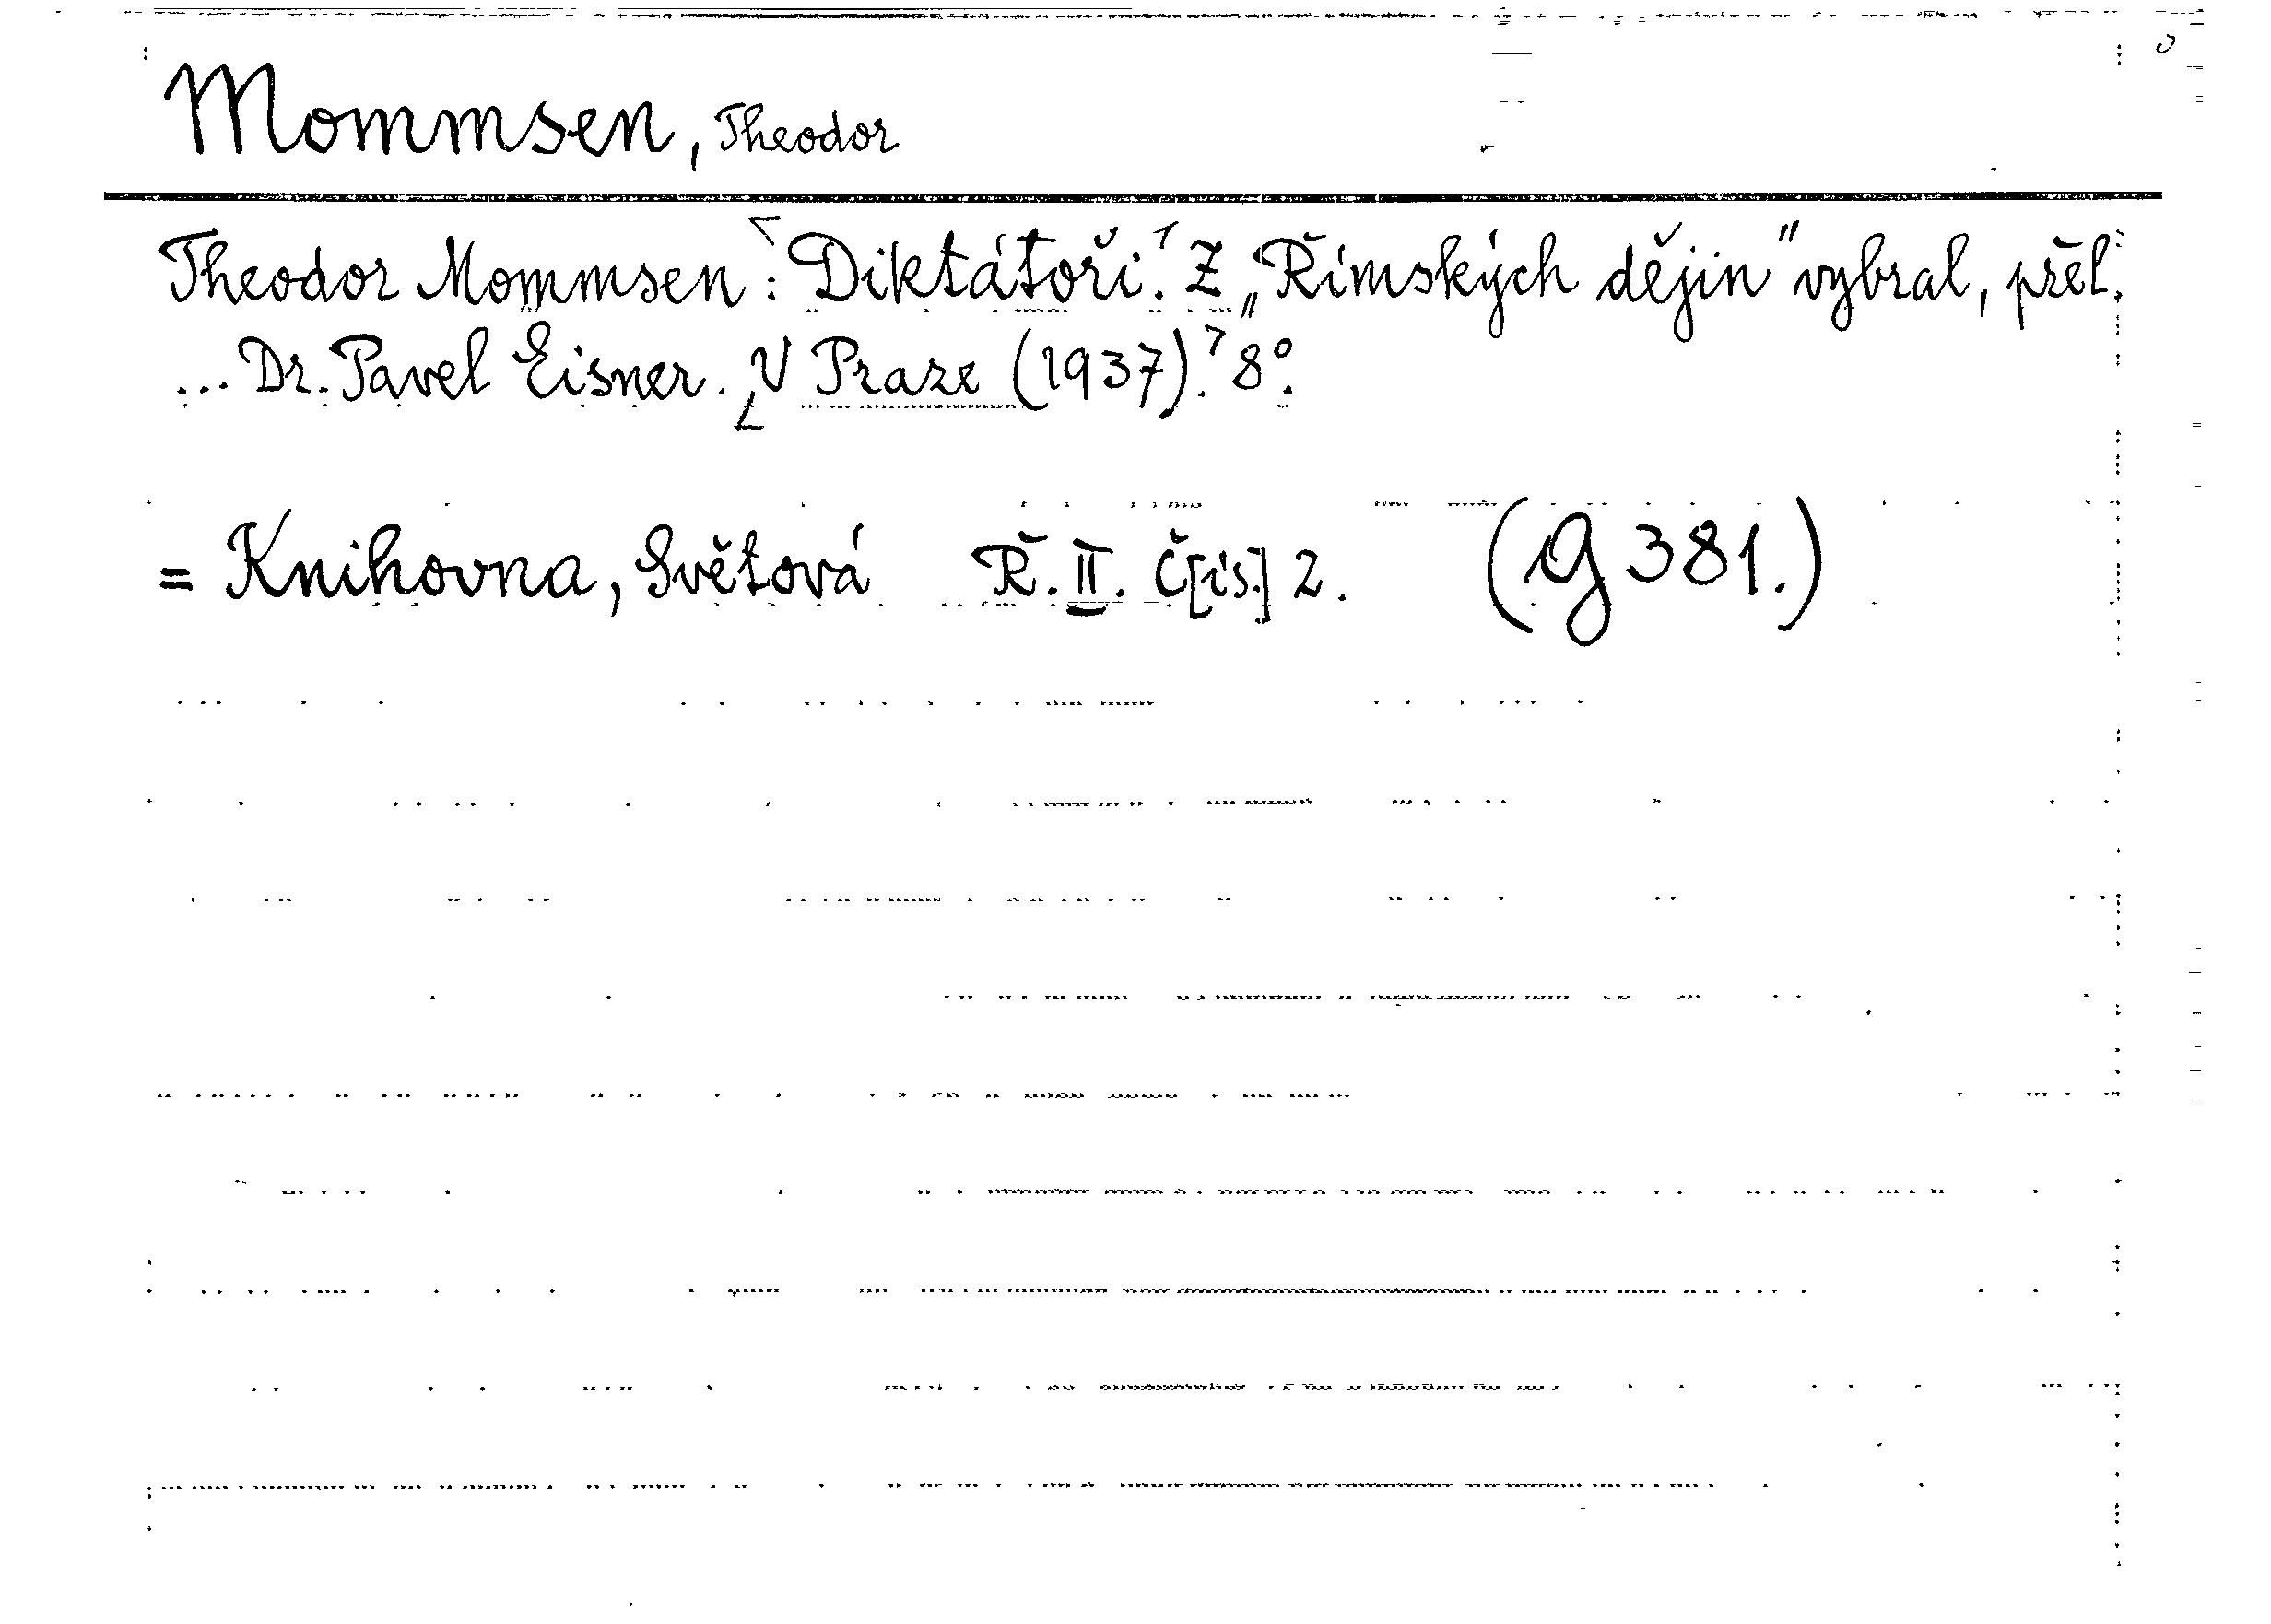 Mommsen, Theodor
Theodor Mommsen: Diktátoři. Z „Římských dějin" vybral, přel.
... Dr. Pavel Eisner. V Praze (1937). 8°.
= Knihovna, Světová Ř. II. Č[ís.] 2. (G 381.)